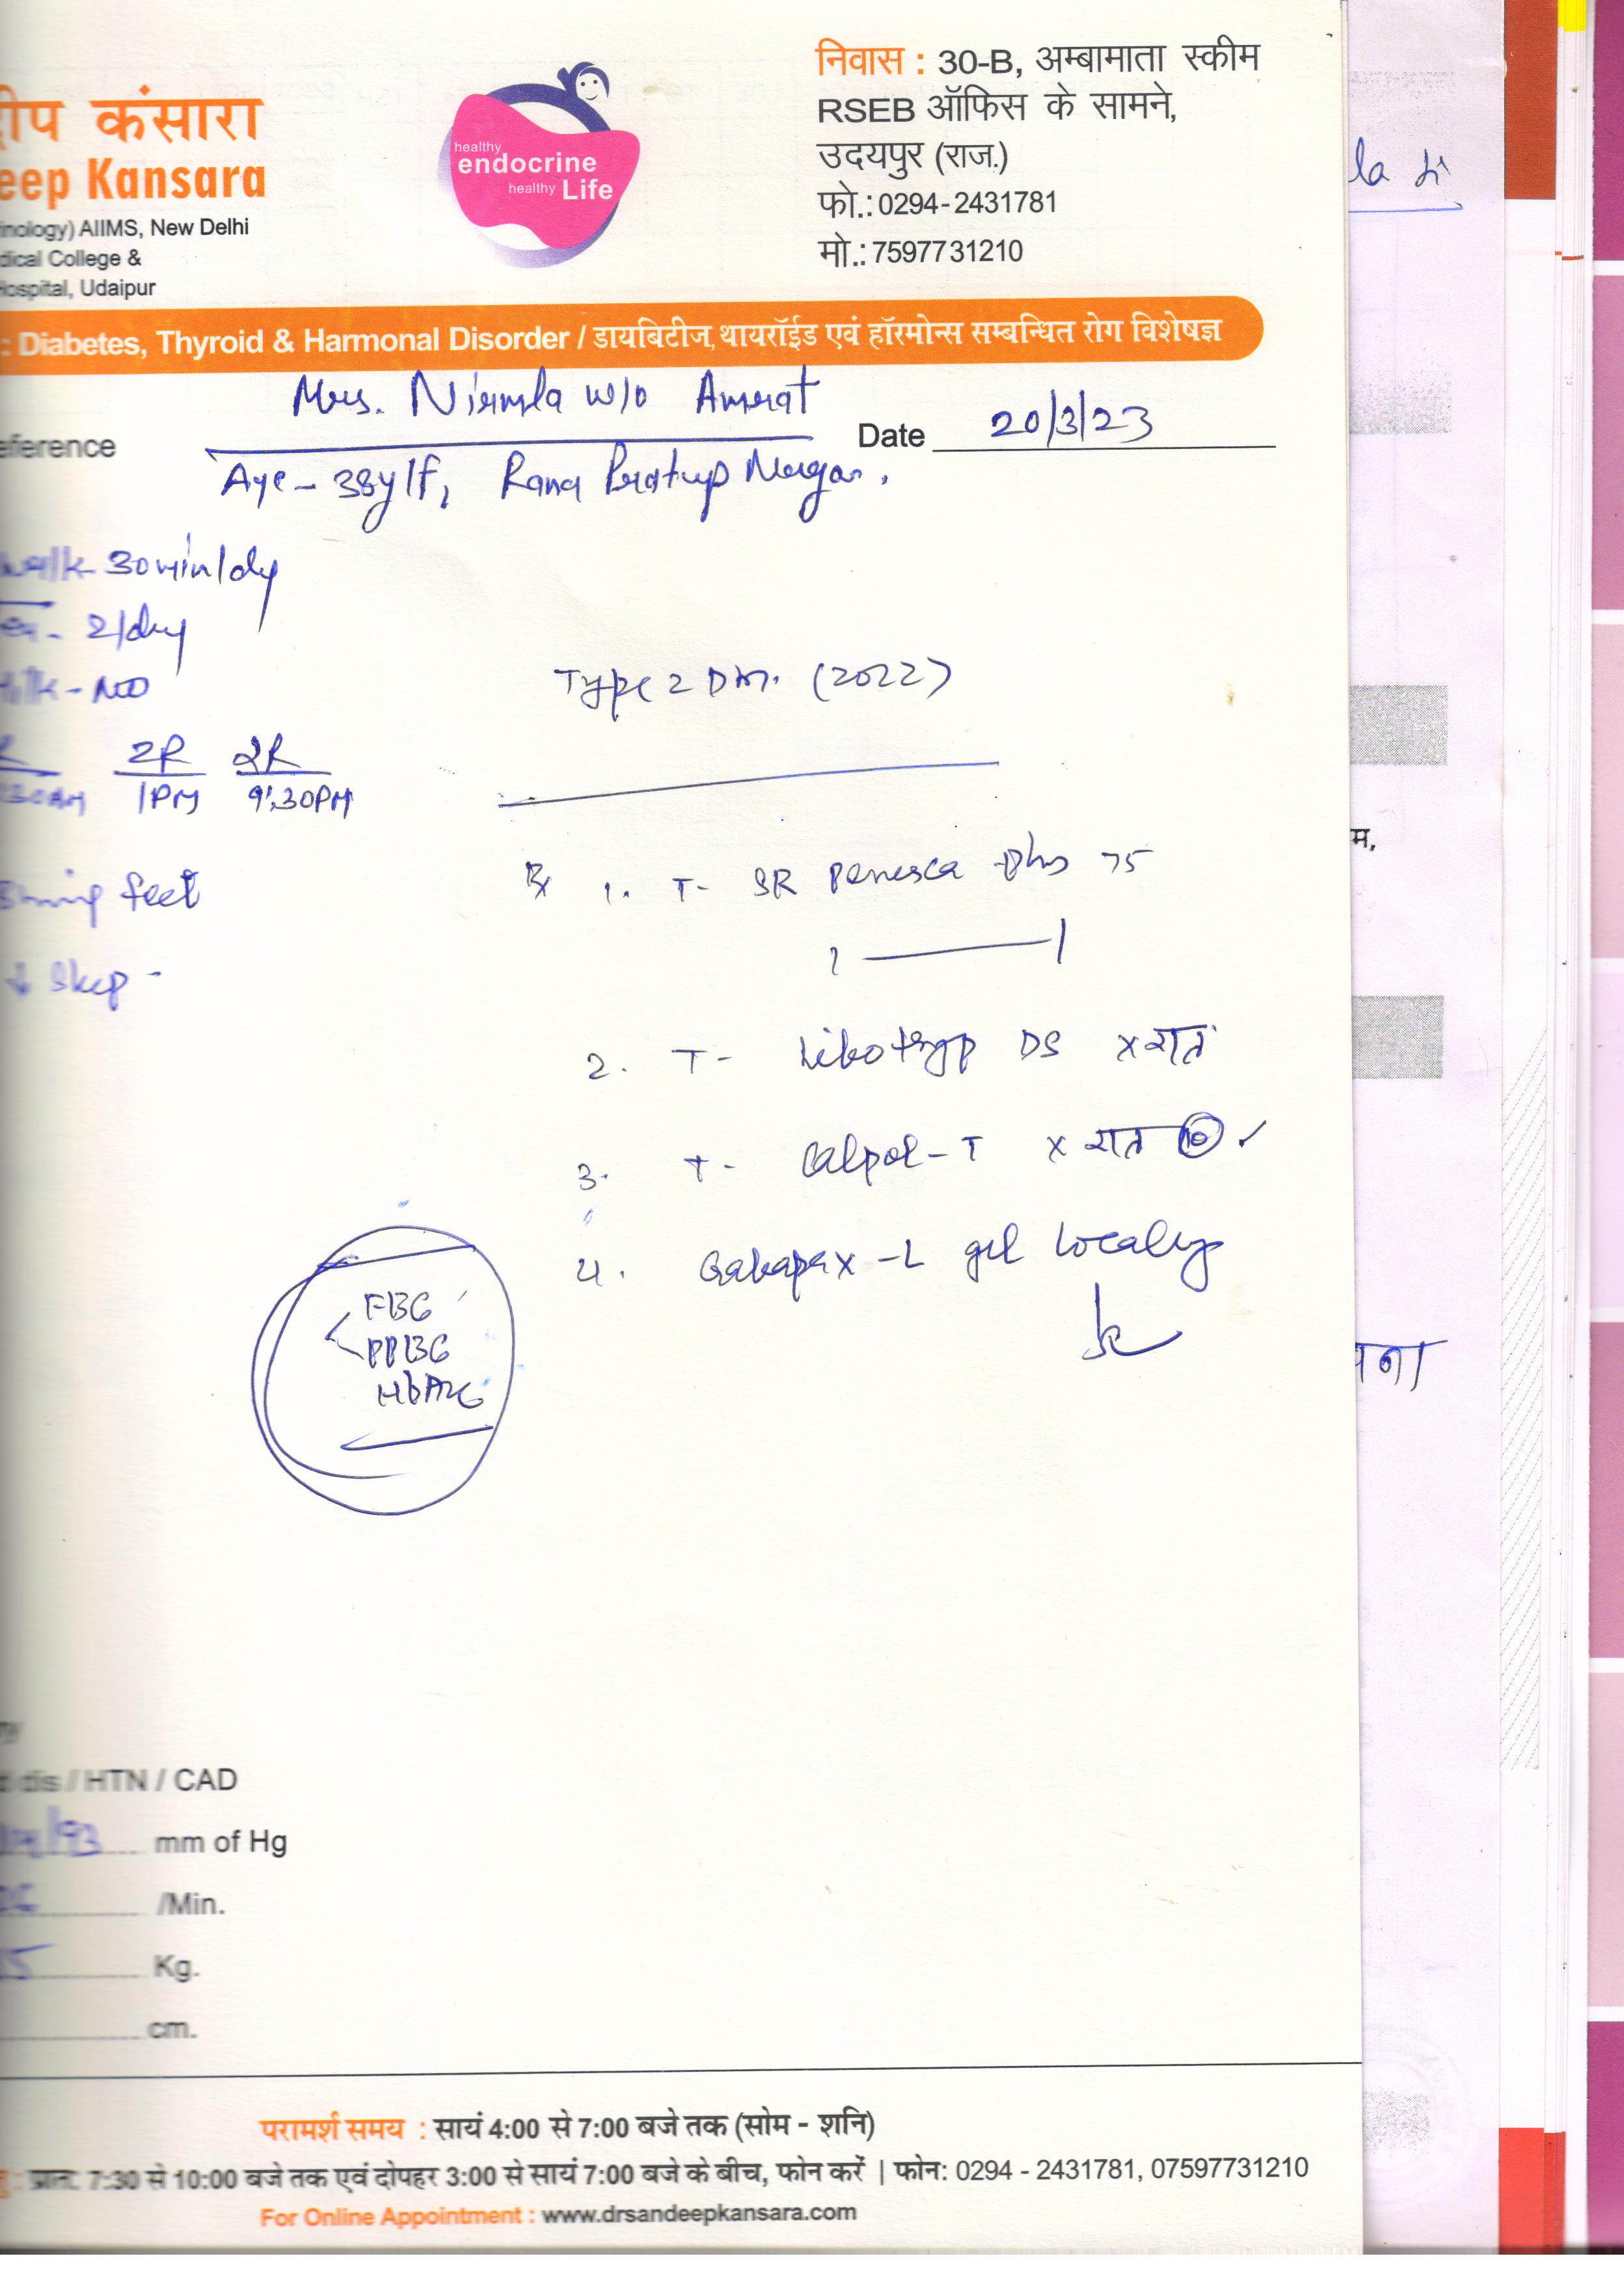 दीप कंसारा
eep Kansara
inology) AIIMS, New Delhi
dical College &
Hospital, Udaipur
healthy
endocrine
healthy Life
निवास : 30-B, अम्बामाता स्कीम
RSEB ऑफिस के सामने,
उदयपुर (राज.)
फो.: 0294-2431781
मो.: 7597731210
: Diabetes, Thyroid & Harmonal Disorder / डायबिटीज, थायरॉईड एवं हॉरमोन्स सम्बन्धित रोग विशेषज्ञ
Mrs. Nirmla w/o Amrat
eference
Date 20/3/23
Age - 38y/f, Rana Pratap Nagar.
walk 30min/dy
2/day
Milk - NO
2R 2R
30AM 1PM 9:30PM
Type 2 DM. (2022)
feet
↓ Sleep -
Rx 1. T- SR Plus 75
1 — 1
2. T- DS x रात
3. T- Calpol-T x रात 10 ✓
4. Gabapax-L gel Locally
FBG
PPBG
HbA1c
la
म,
dis / HTN / CAD
/93 mm of Hg
/Min.
5 Kg.
cm.
परामर्श समय : सायं 4:00 से 7:00 बजे तक (सोम - शनि)
: प्रात: 7:30 से 10:00 बजे तक एवं दोपहर 3:00 से सायं 7:00 बजे के बीच, फोन करें | फोन: 0294 - 2431781, 07597731210
For Online Appointment : www.drsandeepkansara.com